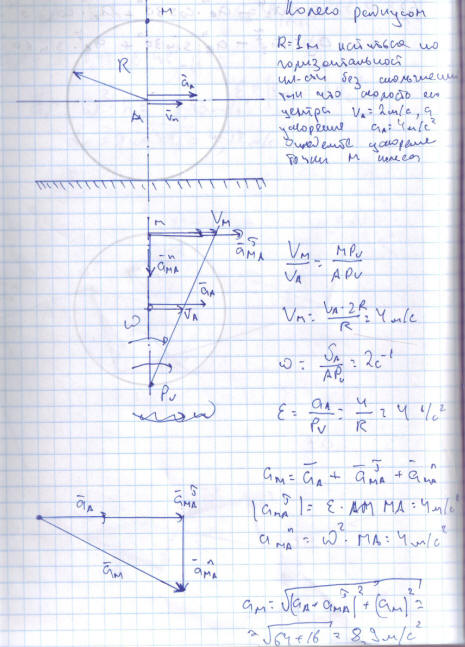 M
Колесо радиусом
R
R=1м катится по
горизонтальной
пл-сти без скольжения
так что скорость его
центра V_A=2м/с, а
ускорение a_A=4м/с²
ускорение
точки M колеса
ā_A
A
v̄_A
M
V_M
ā^τ_MA
ā^n_MA
V_M/V_A = MP_V/AP_V
ā_A
ω
V_A
V_M = V_A·2R/R = 4м/с
ω = V_A/AP_V = 2с⁻¹
P_V
ε = a_A/P_V = 4/R = 4 1/с²
a_M = ā_A + ā^τ_MA + ā^n_MA
ā_A
ā^τ_MA
|a^τ_MA| = ε · MA = 4м/с²
a^n_MA = ω² · MA = 4м/с²
ā_M
ā^n_MA
a_M = √((a_A + a^τ_MA)² + (a_M)²) =
= √(64+16) = 8,9м/с²